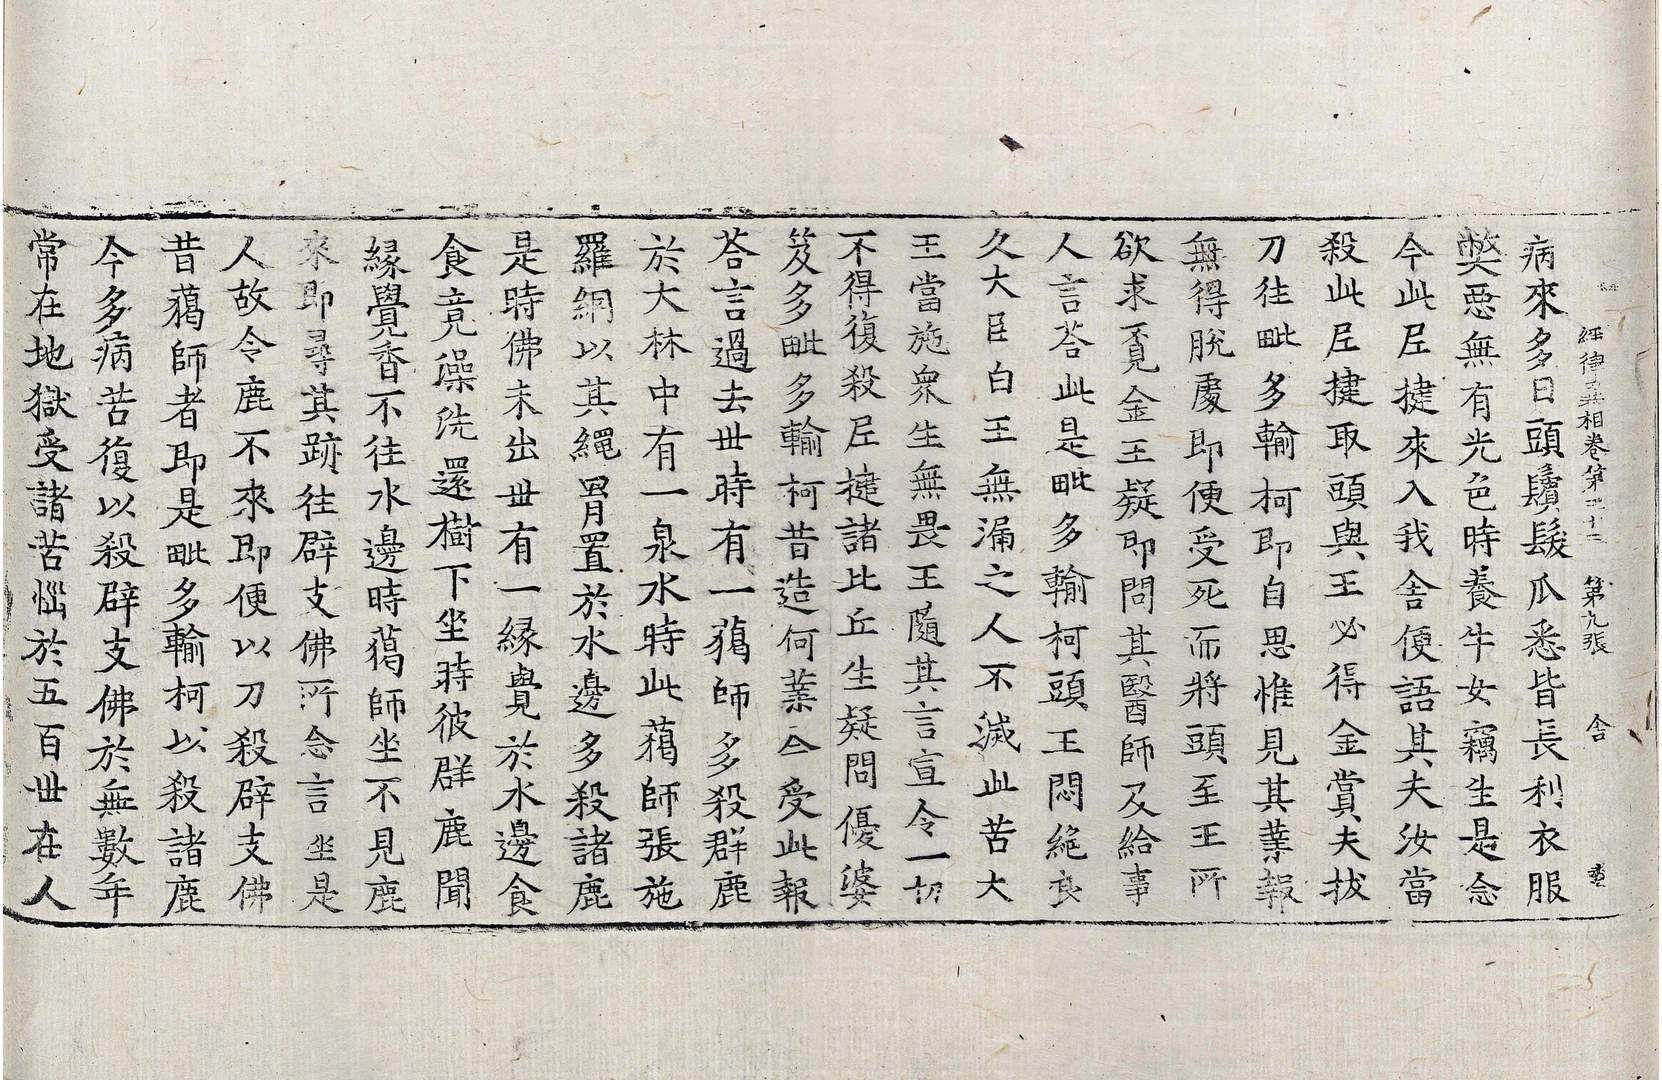 經律異相卷第三十三　第九張　舍
病來多日頭鬚髮爪悉皆長利衣服
弊惡無有光色時養牛女竊生是念
今此尼揵來入我舍便語其夫汝當
殺此尼揵取頭與王必得金賞夫拔
刀往毗多輸柯即自思惟見其業報
無得脫處即便受死而將頭至王所
欲求覓金王疑即問其醫師及給事
人言荅此是毗多輸柯頭王悶絶良
久大臣白王無漏之人不滅此苦大
王當施衆生無畏王隨其言宣令一切
不得復殺尼揵諸比丘生疑問優婆
笈多毗多輸柯昔造何業今受此報
荅言過去世時有一獦師多殺群鹿
於大林中有一泉水時此獦師張施
羅網以其繩羂置於水邊多殺諸鹿
是時佛未出世有一緣覺於水邊食
食竟澡洗還樹下坐時彼群鹿聞
緣覺香不往水邊時獦師坐不見鹿
來即尋其跡往辟支佛所念言坐是
人故令鹿不來即便以刀殺辟支佛
昔獦師者即是毗多輸柯以殺諸鹿
今多病苦復以殺辟支佛於無數年
常在地獄受諸苦惱於五百世在人